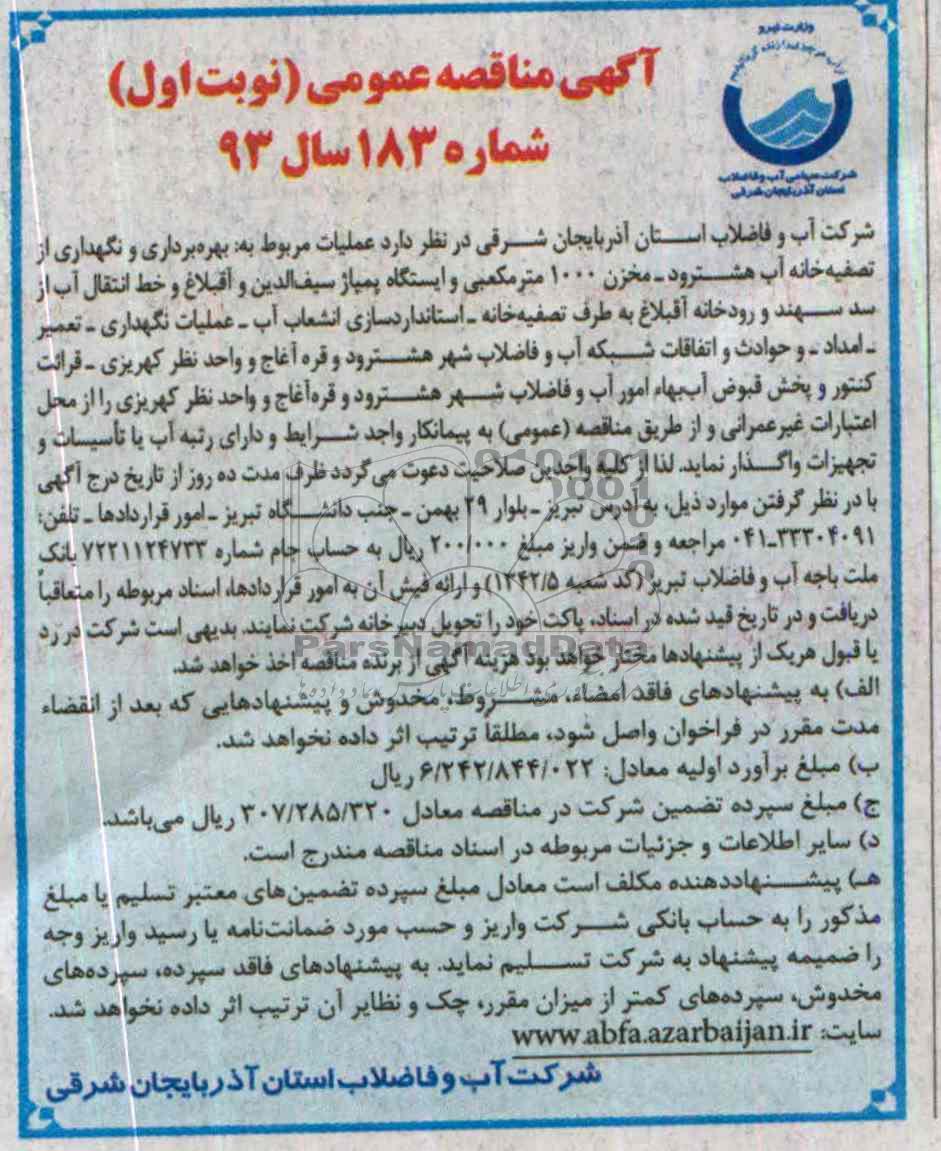 وزارت نیرو
شرکت سهامی آب و فاضلاب
استان آذربایجان شرقی
آگهی مناقصه عمومی (نوبت اول)
شماره ۱۸۳ سال ۹۳
شرکت آب و فاضلاب استان آذربایجان شرقی در نظر دارد عملیات مربوط به: بهره‌برداری و نگهداری از
تصفیه‌خانه آب هشترود ـ مخزن ۱۰۰۰ مترمکعبی و ایستگاه پمپاژ سیف‌الدین و آقبلاغ و خط انتقال آب از
سد سهند و رودخانه آقبلاغ به طرف تصفیه‌خانه ـ استانداردسازی انشعاب آب ـ عملیات نگهداری ـ تعمیر
ـ امداد ـ و حوادث و اتفاقات شبکه آب و فاضلاب شهر هشترود و قره آغاج و واحد نظر کهریزی ـ قرائت
کنتور و پخش قبوض آب‌بهاء امور آب و فاضلاب شهر هشترود و قره‌آغاج و واحد نظر کهریزی را از محل
اعتبارات غیرعمرانی و از طریق مناقصه (عمومی) به پیمانکار واجد شرایط و دارای رتبه آب یا تأسیسات و
تجهیزات واگذار نماید. لذا از کلیه واجدین صلاحیت دعوت می‌گردد ظرف مدت ده روز از تاریخ درج آگهی
با در نظر گرفتن موارد ذیل، به آدرس تبریز ـ بلوار ۲۹ بهمن ـ جنب دانشگاه تبریز ـ امور قراردادها ـ تلفن:
۰۴۱-۳۳۳۰۴۰۹۱ مراجعه و ضمن واریز مبلغ ۲۰۰/۰۰۰ ریال به حساب جام شماره ۷۲۲۱۱۲۴۷۳۳ بانک
ملت باجه آب و فاضلاب تبریز (کد شعبه ۱۳۴۲/۵) و ارائه فیش آن به امور قراردادها، اسناد مربوطه را متعاقباً
دریافت و در تاریخ قید شده در اسناد، پاکت خود را تحویل دبیرخانه شرکت نمایند. بدیهی است شرکت در رد
یا قبول هریک از پیشنهادها مختار خواهد بود هزینه آگهی از برنده مناقصه اخذ خواهد شد.
الف) به پیشنهادهای فاقد امضاء، مشروط، مخدوش و پیشنهادهایی که بعد از انقضاء
مدت مقرر در فراخوان واصل شود، مطلقاً ترتیب اثر داده نخواهد شد.
ب) مبلغ برآورد اولیه معادل: ۶/۲۴۲/۸۴۴/۰۲۲ ریال
ج) مبلغ سپرده تضمین شرکت در مناقصه معادل ۳۰۷/۲۸۵/۳۲۰ ریال می‌باشد.
د) سایر اطلاعات و جزئیات مربوطه در اسناد مناقصه مندرج است.
هـ) پیشنهاددهنده مکلف است معادل مبلغ سپرده تضمین‌های معتبر تسلیم یا مبلغ
مذکور را به حساب بانکی شرکت واریز و حسب مورد ضمانت‌نامه یا رسید واریز وجه
را ضمیمه پیشنهاد به شرکت تسلیم نماید. به پیشنهادهای فاقد سپرده، سپرده‌های
مخدوش، سپرده‌های کمتر از میزان مقرر، چک و نظایر آن ترتیب اثر داده نخواهد شد.
سایت: www.abfa.azarbaijan.ir
شرکت آب و فاضلاب استان آذربایجان شرقی
ParsNamadData